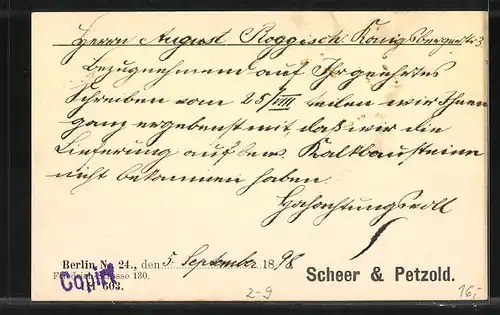 Herrn August Roggisch Königsbergerstr 3.
Bezugnehmend auf Ihr geehrtes
Schreiben vom 25/VIII teilen wir Ihnen
ganz ergebenst mit, daß wir die
Lieferung auf bew. Kalkbausteine
nicht bekommen haben.
Hochachtungsvoll
Berlin, N. 24., den 5. September 1898.
Friedrich-Strasse 130.
603.
Copirt
Scheer & Petzold.
2-9
16,-